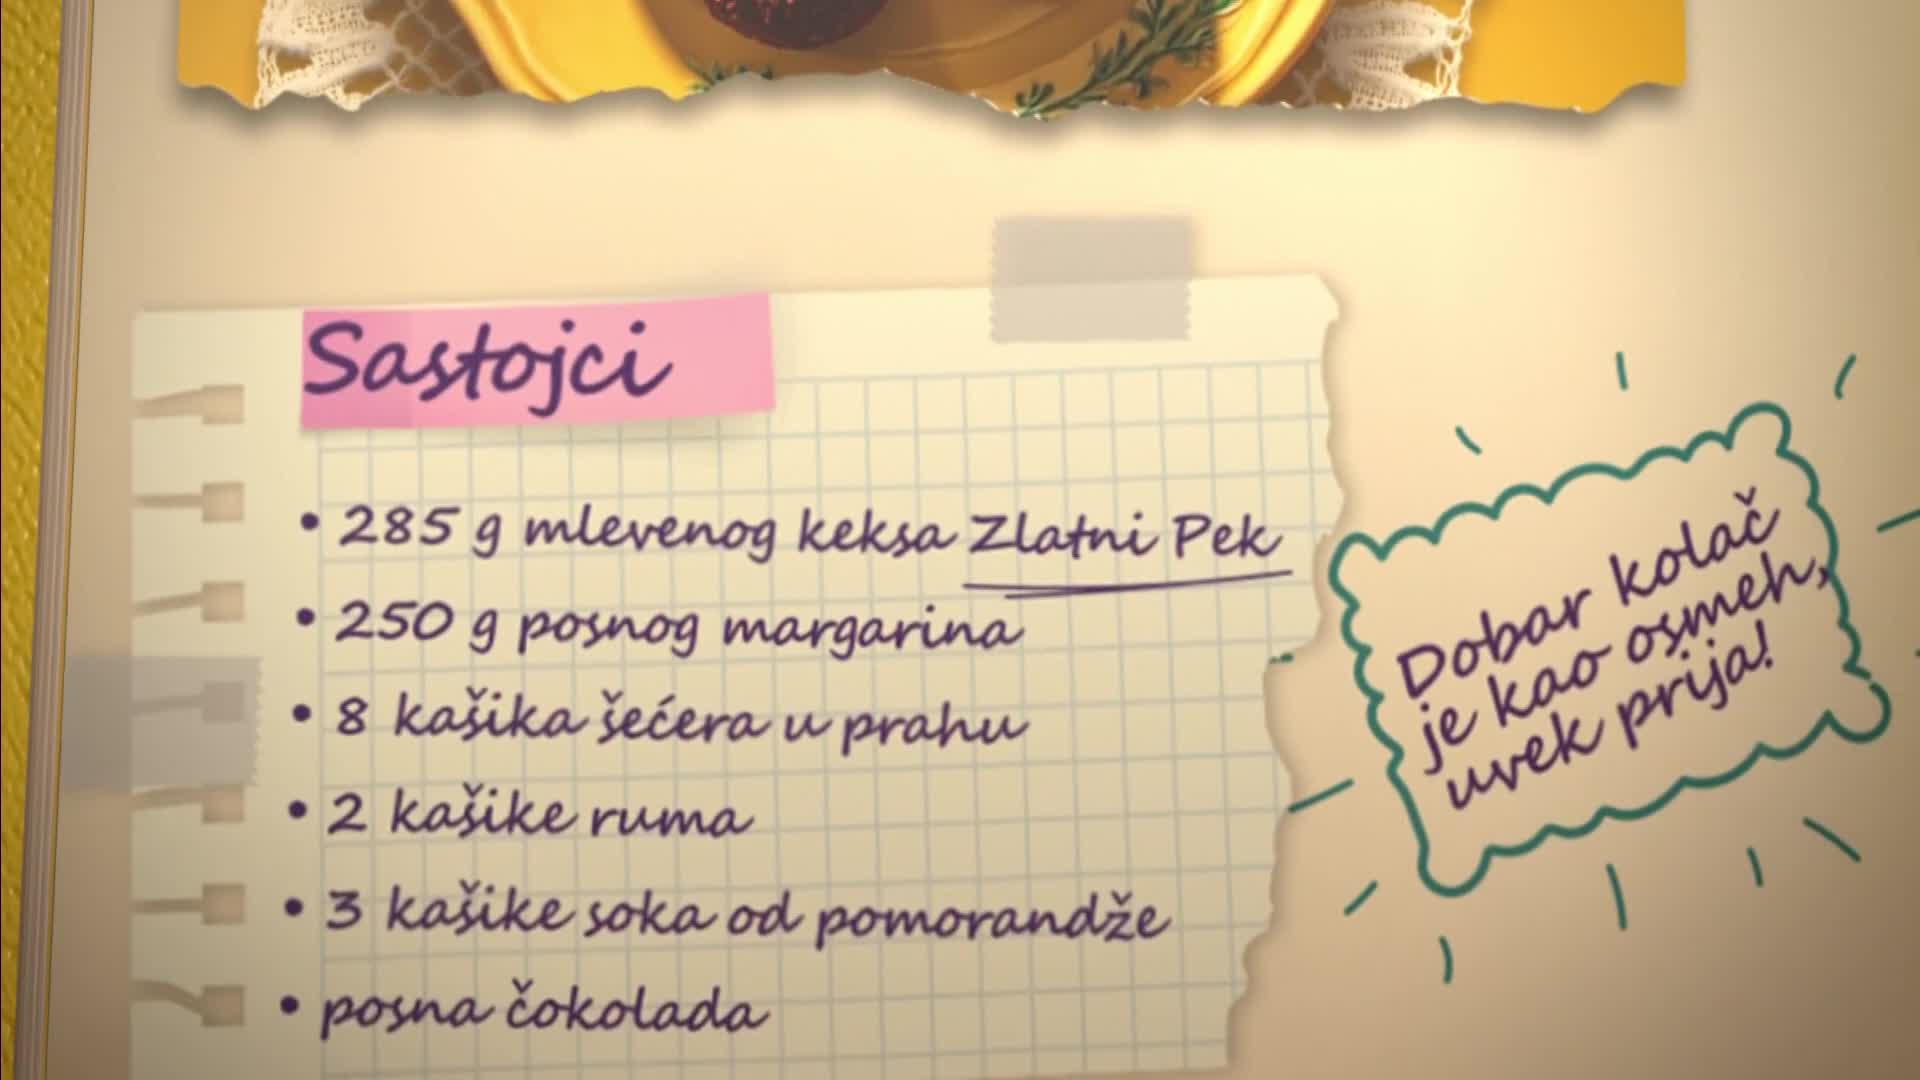 Sastojci
• 285 g mlevenog keksa Zlatni Pek
• 250 g posnog margarina
• 8 kašika šećera u prahu
• 2 kašike ruma
• 3 kašike soka od pomorandže
• posna čokolada
Dobar kolač
je kao osmeh,
uvek prija!